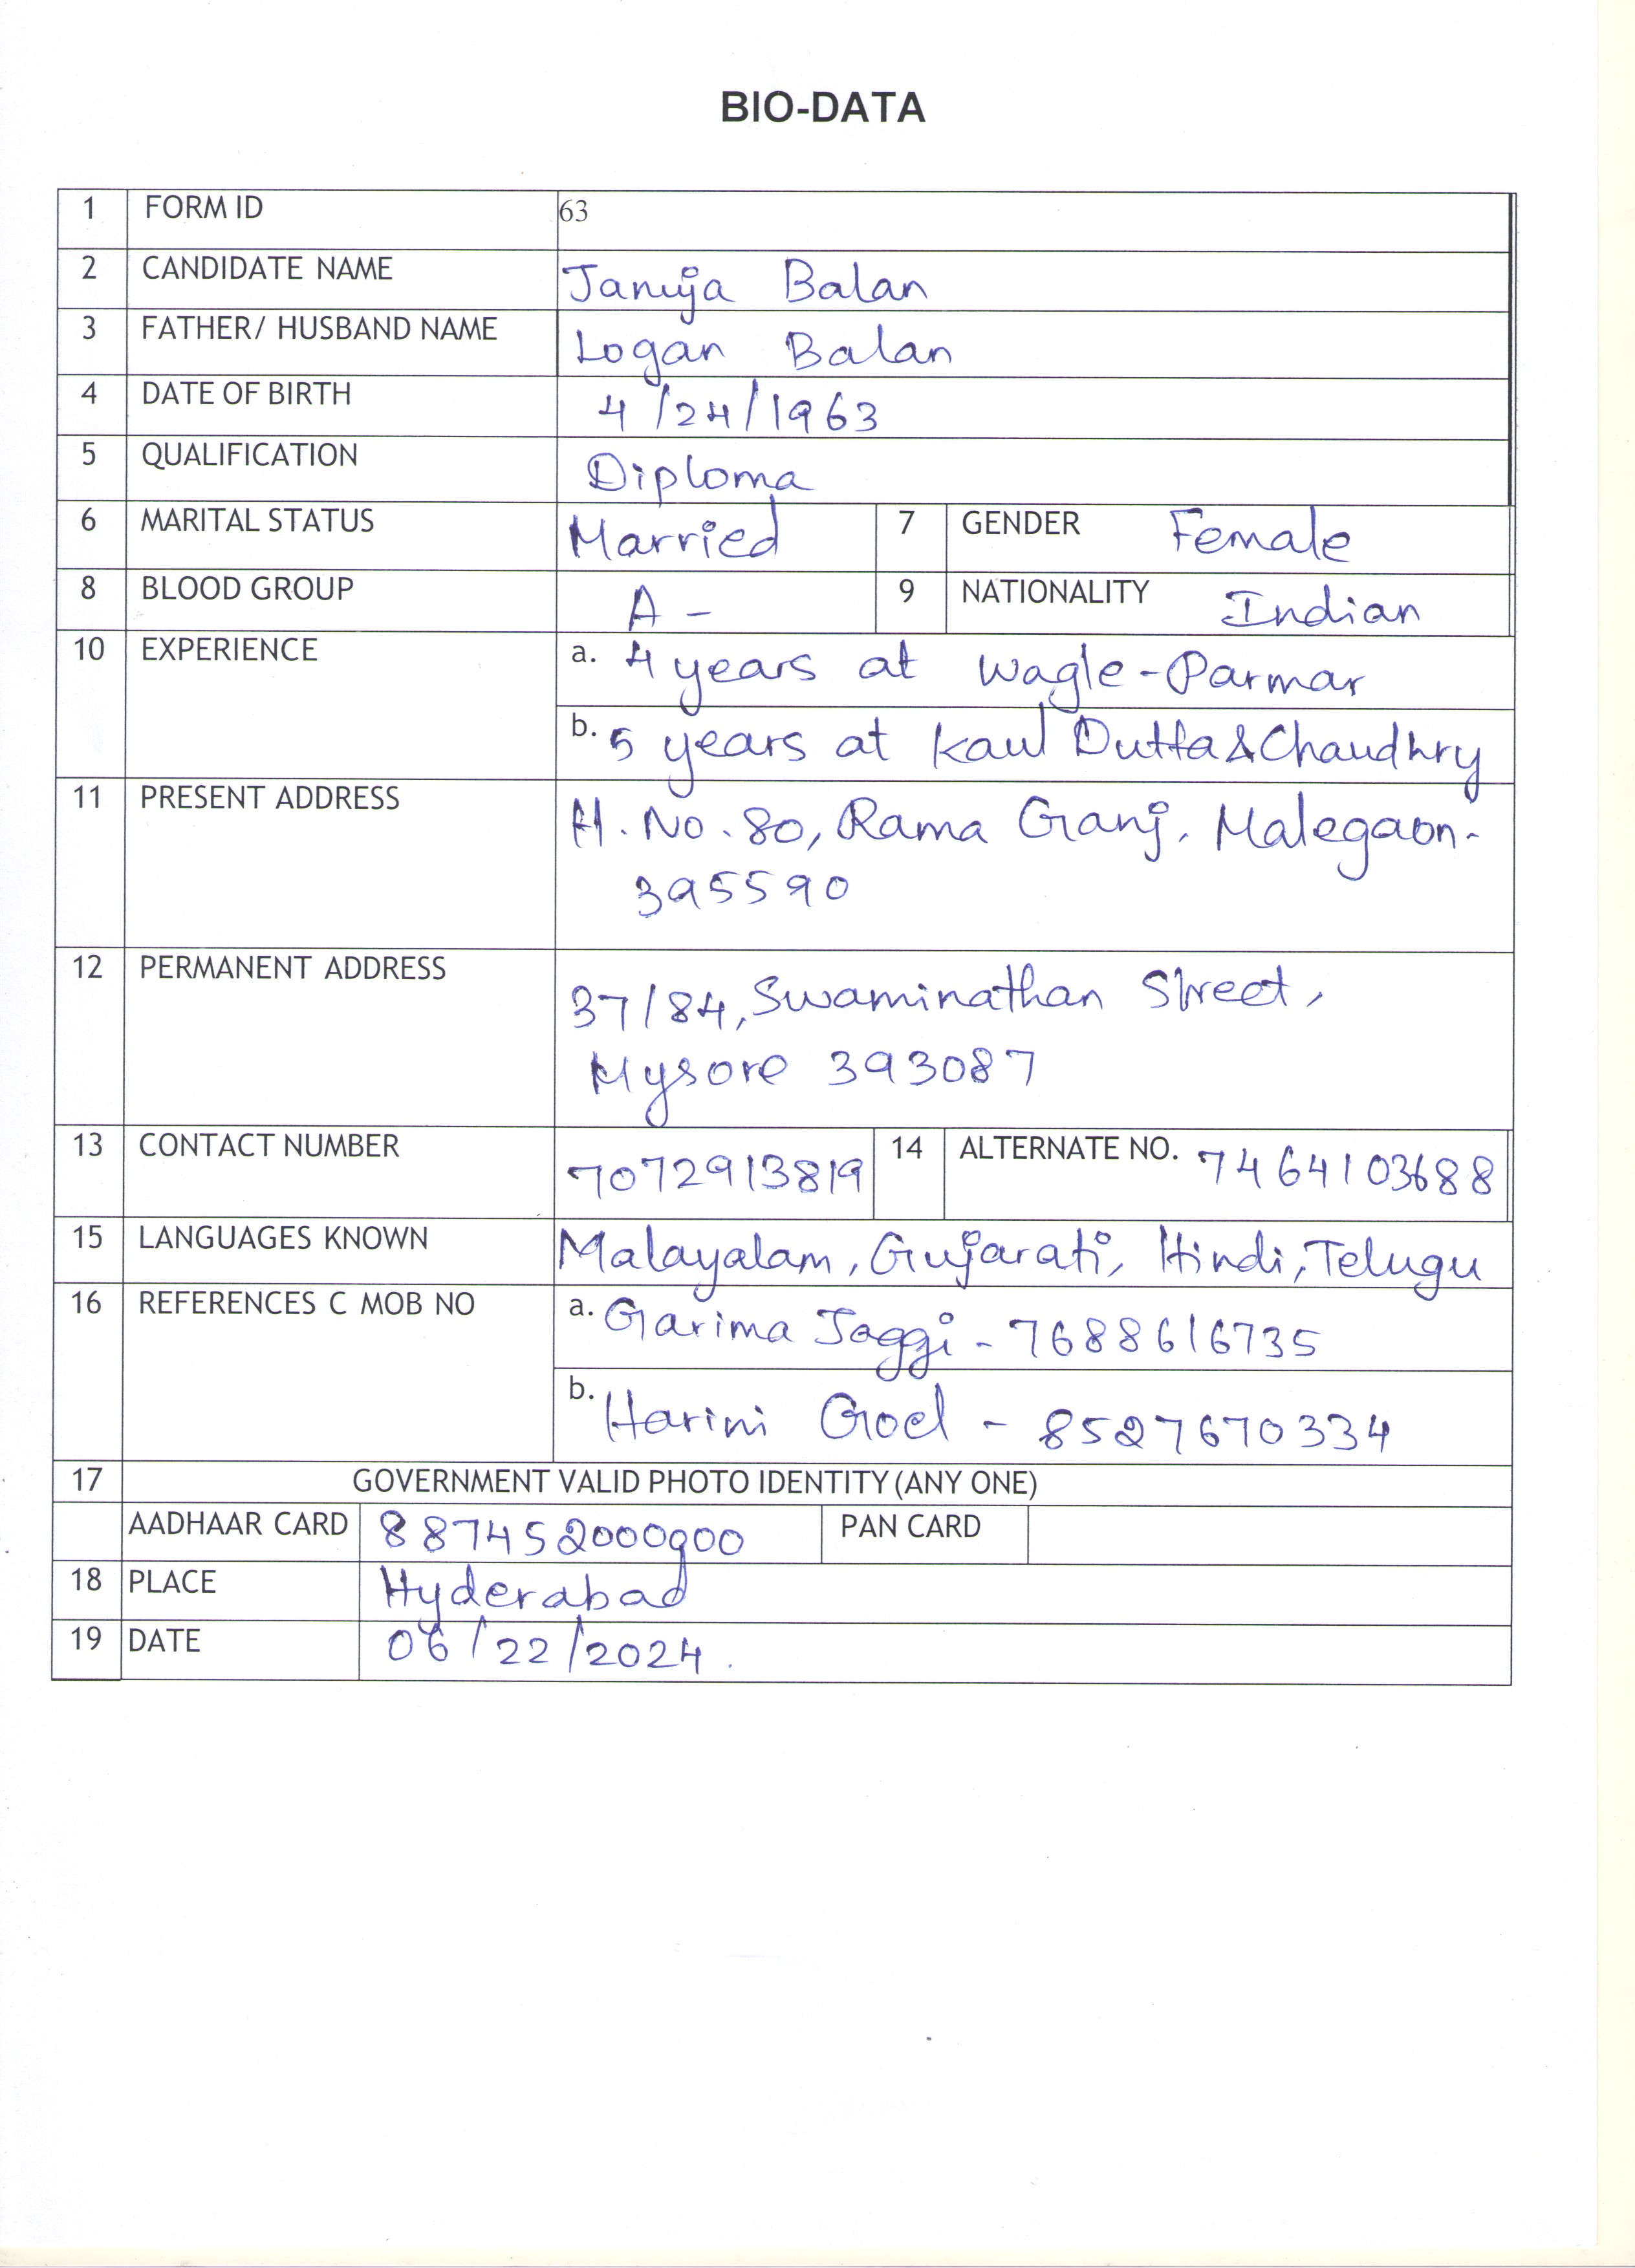 BIO-DATA
1 FORM ID 63
2 CANDIDATE NAME Janya Balan
3 FATHER/ HUSBAND NAME Logan Balan
4 DATE OF BIRTH 4/24/1963
5 QUALIFICATION Diploma
6 MARITAL STATUS Married 7 GENDER Female
8 BLOOD GROUP A - 9 NATIONALITY Indian
10 EXPERIENCE a. 4 years at Wagle-Parmar
b. 5 years at Kaul Dutta & Chaudhry
11 PRESENT ADDRESS H. No. 80, Rama Ganj, Malegaon-
395590
12 PERMANENT ADDRESS 37/84, Swaminathan Street,
Mysore 393087
13 CONTACT NUMBER 7072913819 14 ALTERNATE NO. 7464103688
15 LANGUAGES KNOWN Malayalam, Gujarati, Hindi, Telugu
16 REFERENCES C MOB NO a. Garima Jaggi - 7688616735
b. Harini Goel - 8527670334
17 GOVERNMENT VALID PHOTO IDENTITY (ANY ONE)
AADHAAR CARD 887452000900 PAN CARD
18 PLACE Hyderabad
19 DATE 06/22/2024.